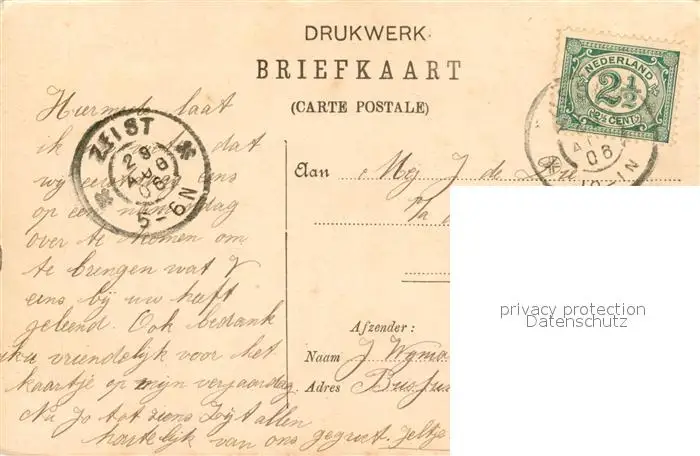 DRUKWERK.
BRIEFKAART
(CARTE POSTALE)
NEDERLAND
2½
(2½ CENT)
ZEIST
29
AUG
06
5-6N
06
Hiermede laat
ik dat
wij eens
op een namiddag
over te komen om
te brengen wat
eens bij uw heeft
geleend. Ook bedank
vriendelijk voor het
kaartje op mijn verjaardag
Nu Jo tot ziens Zijt allen
hartelijk van ons gegroet. Jeltje
Aan Mej J de
Afzender:
Naam J
Adres Bussu
privacy protection
Datenschutz